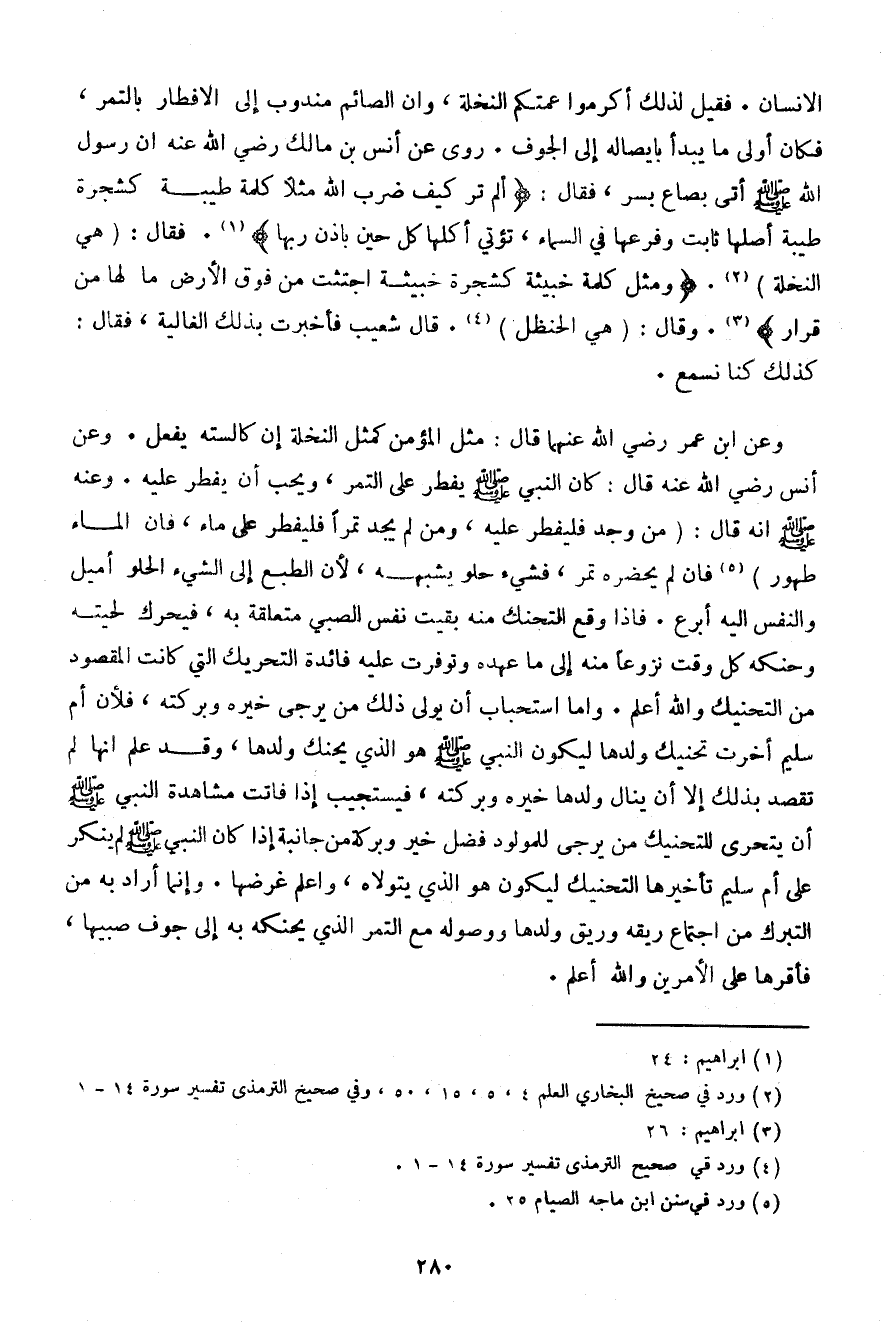 الانسان . فقيل لذلك أكرموا عمتكم النخلة ، وان الصائم مندوب إلى الافطار بالتمر ،
فكان أولى ما يبدأ بايصاله إلى الجوف . روى عن أنس بن مالك رضي الله عنه ان رسول
الله ﷺ أتى بصاع بسر ، فقال : ﴿ ألم تر كيف ضرب الله مثلاً كلمة طيبة كشجرة
طيبة أصلها ثابت وفرعها في السماء ، تؤتي أكلها كل حين باذن ربها ﴾ (١) . فقال : ( هي
النخلة ) (٢) . ﴿ ومثل كلمة خبيثة كشجرة خبيثة اجتثت من فوق الأرض ما لها من
قرار ﴾ (٣) . وقال : ( هي الحنظل ) (٤) . قال شعيب فأخبرت بذلك الغالية ، فقال :
كذلك كنا نسمع .
وعن ابن عمر رضي الله عنهما قال : مثل المؤمن كمثل النخلة إن كالسته يفعل . وعن
أنس رضي الله عنه قال : كان النبي ﷺ يفطر على التمر ، ويحب أن يفطر عليه . وعنه
ﷺ انه قال : ( من وجد فليفطر عليه ، ومن لم يجد تمراً فليفطر على ماء ، فان الماء
طهور ) (٥) فان لم يحضره تمر ، فشيء حلو يشبهه ، لأن الطبع إلى الشيء الحلو أميل
والنفس اليه أبرع . فاذا وقع التحنك منه بقيت نفس الصبي متعلقة به ، فيحرك لحيته
وحنكه كل وقت نزوعاً منه إلى ما عهده وتوفرت عليه فائدة التحريك التي كانت المقصود
من التحنيك والله أعلم . واما استحباب أن يولى ذلك من يرجى خيره وبركته ، فلأن أم
سليم أخرت تحنيك ولدها ليكون النبي ﷺ هو الذي يحنك ولدها ، وقد علم انها لم
تقصد بذلك إلا أن ينال ولدها خيره وبركته ، فيستجيب إذا فاتت مشاهدة النبي ﷺ
أن يتحرى للتحنيك من يرجى للمولود فضل خير وبركة من جانبة إذا كان النبي ﷺ لم ينكر
على أم سليم تأخيرها التحنيك ليكون هو الذي يتولاه ، واعلم غرضها . وإنما أراد به من
التبرك من اجتماع ريقه وريق ولدها ووصوله مع التمر الذي يحنكه به إلى جوف صبيها ،
فأقرها على الأمرين والله أعلم .
(١) ابراهيم : ٢٤
(٢) ورد في صحيخ البخاري العلم ٤ ، ٥ ، ١٥ ، ٥٠ ، وفي صحيخ الترمذى تفسير سورة ١٤ – ١
(٣) ابراهيم : ٢٦
(٤) ورد قي صحيح الترمذى تفسير سورة ١٤ – ١ .
(٥) ورد في سنن ابن ماجه الصيام ٢٥ .
٢٨٠